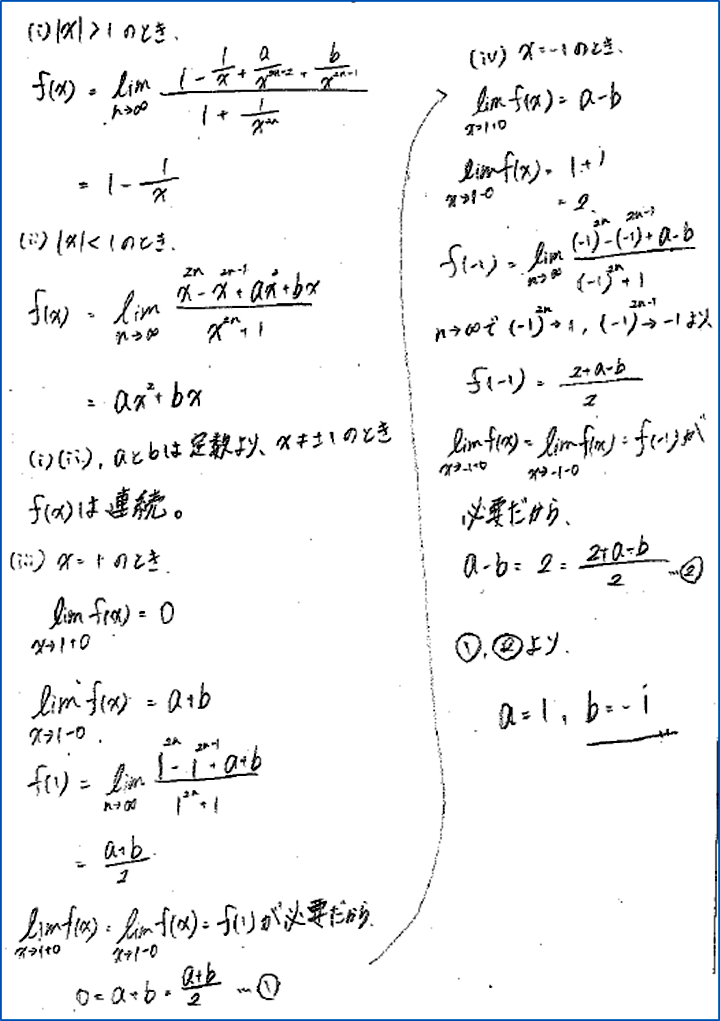 (i) |x|>1 のとき、
f(x) = lim_{n→∞} (1 - 1/x + a/x^{2n-2} + b/x^{2n-1}) / (1 + 1/x^{2n})
= 1 - 1/x
(ii) |x|<1 のとき、
f(x) = lim_{n→∞} (x^{2n} - x^{2n-1} + ax^2 + bx) / (x^{2n} + 1)
= ax^2 + bx
(i)(ii), aとbは定数より、x≠±1のとき
f(x)は連続。
(iii) x=1 のとき、
lim_{x→1+0} f(x) = 0
lim_{x→1-0} f(x) = a+b
f(1) = lim_{n→∞} (1^{2n} - 1^{2n-1} + a+b) / (1^{2n} + 1)
= (a+b)/2
lim_{x→1+0} f(x) = lim_{x→1-0} f(x) = f(1) が必要だから、
0 = a+b = (a+b)/2 …①
(iv) x=-1 のとき、
lim_{x→1+0} f(x) = a-b
lim_{x→1-0} f(x) = 1+1
= 2
f(-1) = lim_{n→∞} ((-1)^{2n} - (-1)^{2n-1} + a-b) / ((-1)^{2n} + 1)
n→∞で (-1)^{2n}→1, (-1)^{2n-1}→-1 より
f(-1) = (2+a-b)/2
lim_{x→-1+0} f(x) = lim_{x→-1-0} f(x) = f(-1) が
必要だから、
a-b = 2 = (2+a-b)/2 …②
①,②より、
a=1, b=-1